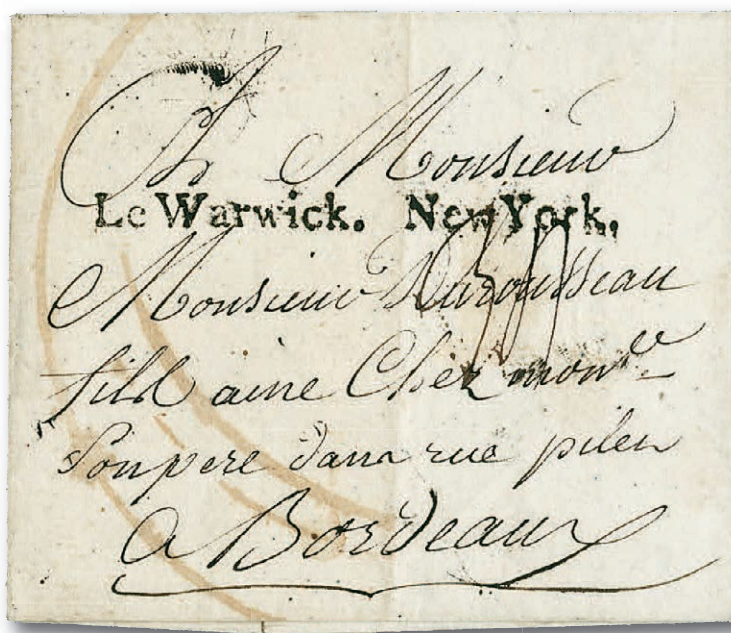 A Monsieur
Le Warwick. New York.
Monsieur
fils ainé Chez monsr
Son pere dans rue
a Bordeaux